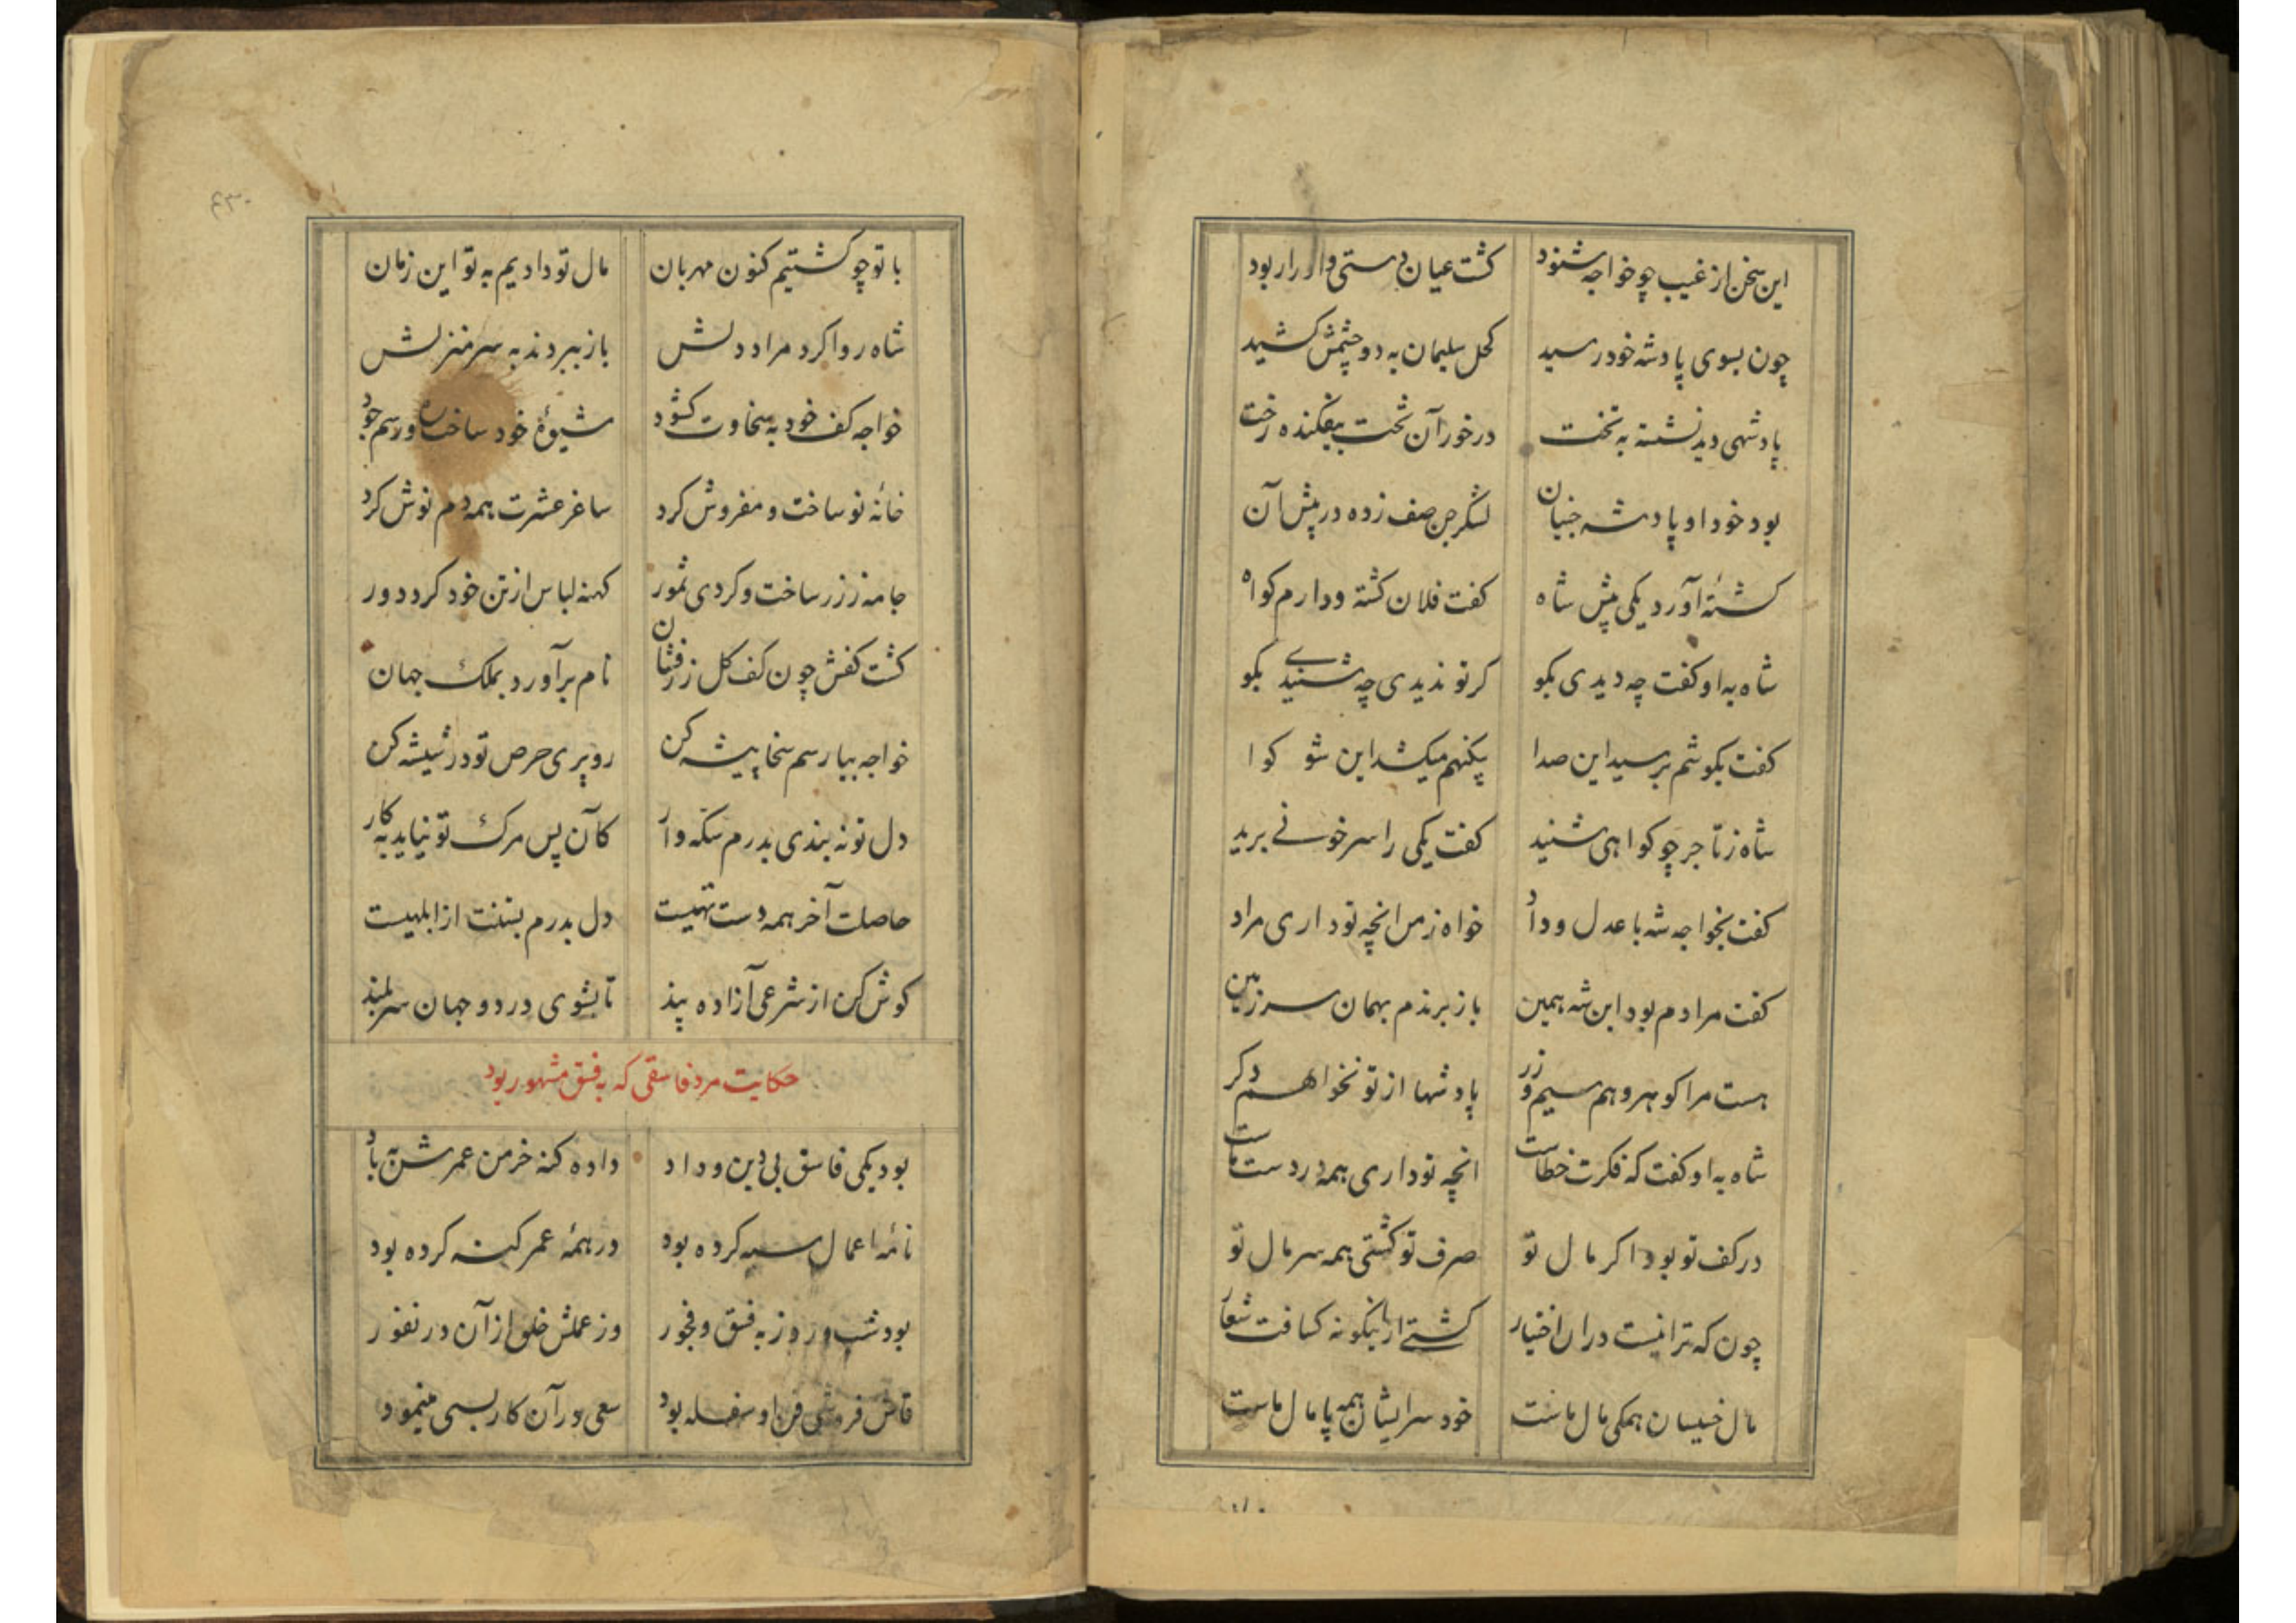 این سخن از غیب چو خواجه شنود کشت عیان دستی و از را ربود
چون بسوی پادشه خود رسید کحل سلیمان به دو چشمش کشید
پادشهی دید نشسته به تخت درخور آن تخت بیفکنده رخت
بود خود او پادشه جنیان لشکر جن صف زده در پیش آن
کشتهٔ آورد یکی پیش شاه کفت فلان کشته و دارم کواه
شاه به او کفت چه دیدی بکو کر تو ندیدی چه شنیدی بکو
کفت بکوشم برسید این صدا بیکنهم میکشد این شو کوا
شاه ز تاجر چو کواهی شنید کفت یکی را سر خونی برید
کفت بخواجه شه با عدل و داد خواه ز من انچه تو داری مراد
کفت مرادم بود این شه همین باز برندم بهمان سرزمین
هست مرا کوهر و هم سیم و زر پادشها از تو نخواهم دکر
شاه به او کفت که فکرت خطاست انچه تو داری همه در دست ماست
در کف تو بود اکر مال تو صرف تو کشتی همه سر مال تو
چون که ترا نیست دران اختیار کشتی ازینکونه کسافت شعار
مال خسیسان همکی مال ماست خود سر ایشان همه پامال ماست
با تو چو کشتیم کنون مهربان مال تو دادیم به تو این زمان
شاه روا کرد مراد دلش باز ببردند به سر منزلش
خواجه کف خود به سخاوت کشود شیوهٔ خود ساخت ره و رسم جود
خانهٔ نو ساخت و مفروش کرد ساغر عشرت همه دم نوش کرد
جامه ز زر ساخت و کردی ثمور کهنه لباس از تن خود کرد دور
کشت کفش چون کف کل زرفشان نام برآورد بملک جهان
خواجه بیا رسم سخا پیشه کن رو پری حرص تو در شیشه کن
دل تو نه بندی بدرم سکه وار کان پس مرک تو نیاید به کار
حاصلت آخر همه دست تهیست دل بدرم بستنت از ابلهیست
کوش کن از شرعی آزاده پند تا بشوی در دو جهان سربلند
حکایت مرد فاسقی که به فسق مشهور بود
بود یکی فاسق بی دین و داد داده کنه خرمن عمرش به باد
نامهٔ اعمال سیه کرده بود در همهٔ عمر کنه کرده بود
بود شب و روز به فسق و فجور وز عملش خلق از آن در نفور
قاش فروشی فن او سفله بود سعی در آن کار بسی مینمود